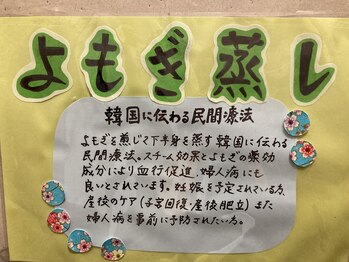 よもぎ蒸し
韓国に伝わる民間療法
よもぎを煎じて下半身を蒸す韓国に伝わる
民間療法。スチーム効果とよもぎの薬効
成分により血行促進、婦人病にも
良いとされています。妊娠を予定されている方、
産後のケア(子宮回復・産後肥立)また
婦人病を事前に予防されたい方。